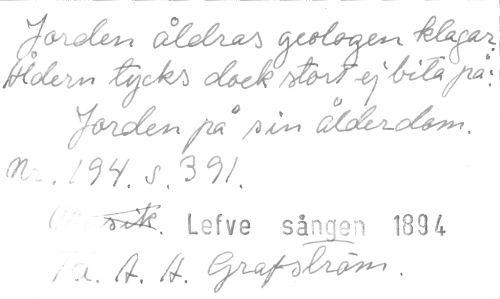 Jorden åldras geologen klagar.
Åldern tycks dock stort ej bita på:
Jorden på sin ålderdom.
Nr. 194. s. 391.
Musik. Lefve sången 1894
A. H. Grafström.